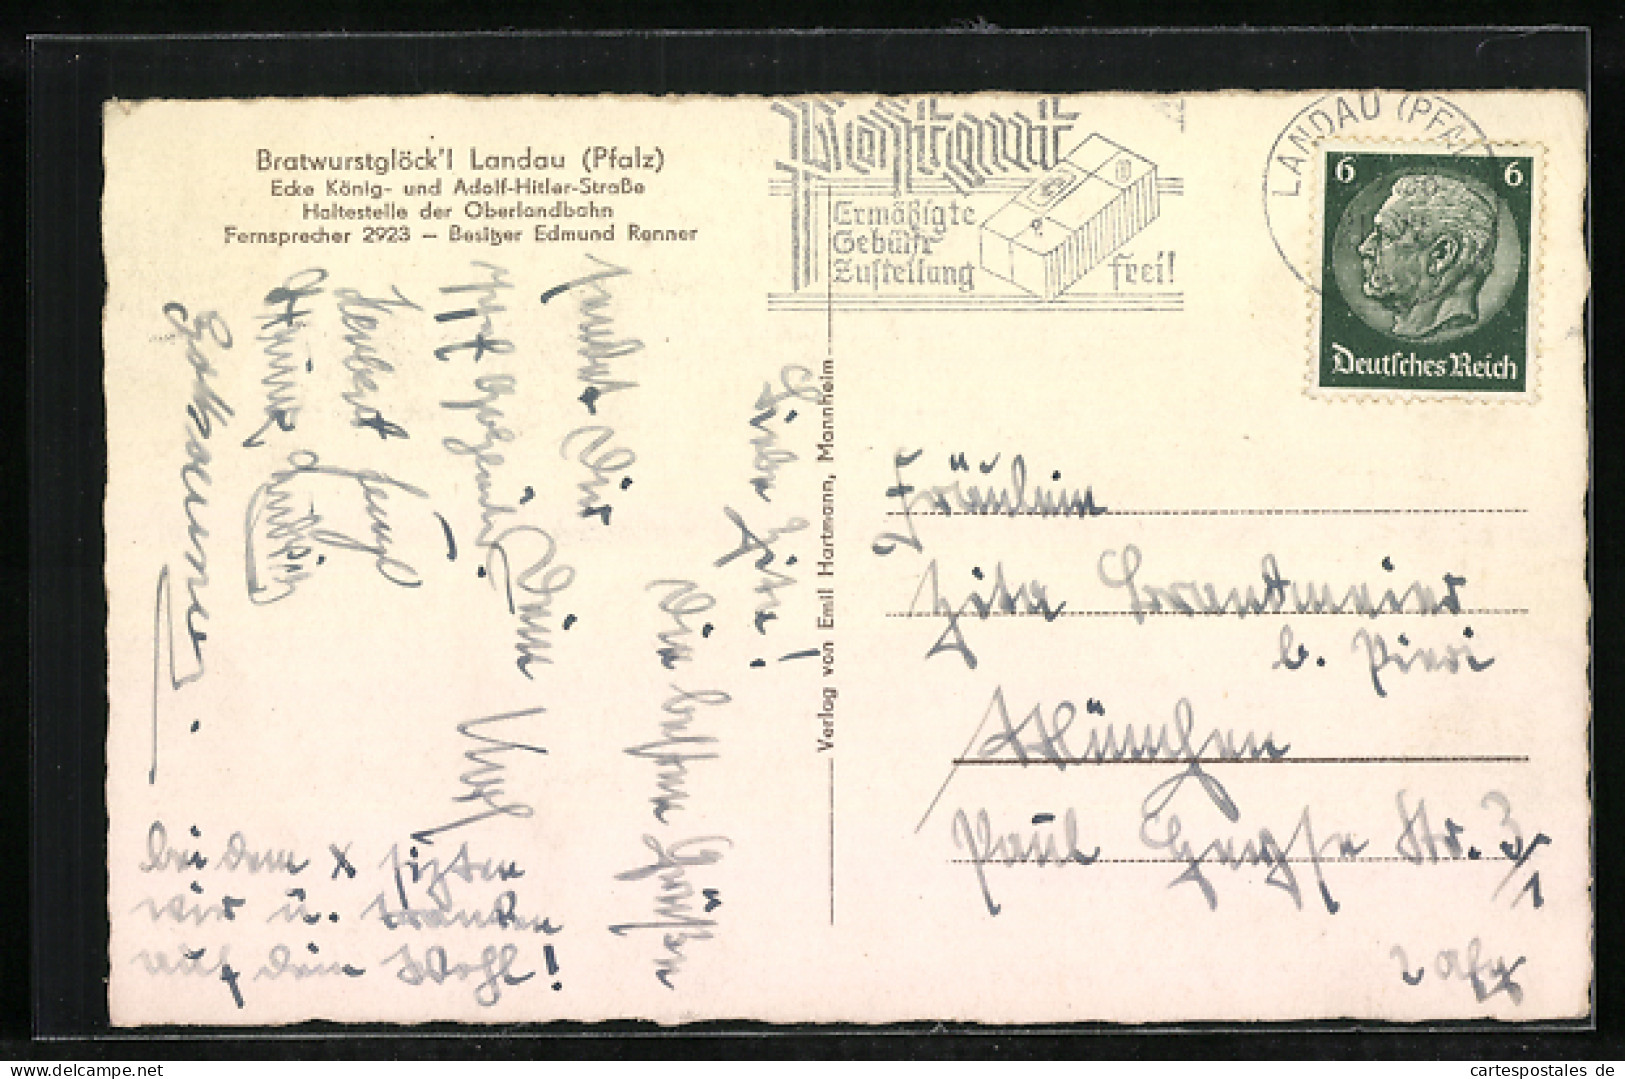 Bratwurstglöck'l Landau (Pfalz)
Ecke König- und Adolf-Hitler-Straße
Haltestelle der Oberlandbahn
Fernsprecher 2923 – Besitzer Edmund Renner
Postgut
Ermäßigte
Gebühr
Zustellung frei!
LANDAU (PFALZ)
6 6
Deutsches Reich
Verlag von Emil Hartmann, Mannheim
Liebe Zita!
Die besten Grüße
sendet Dir
Dein
bei dem X sitzten
wir u. tranken
auf dein Wohl!
Fräulein
Zita Brandmeier
b. Pieri
München
Paul Heyse Str. 3/1
cartespostales de